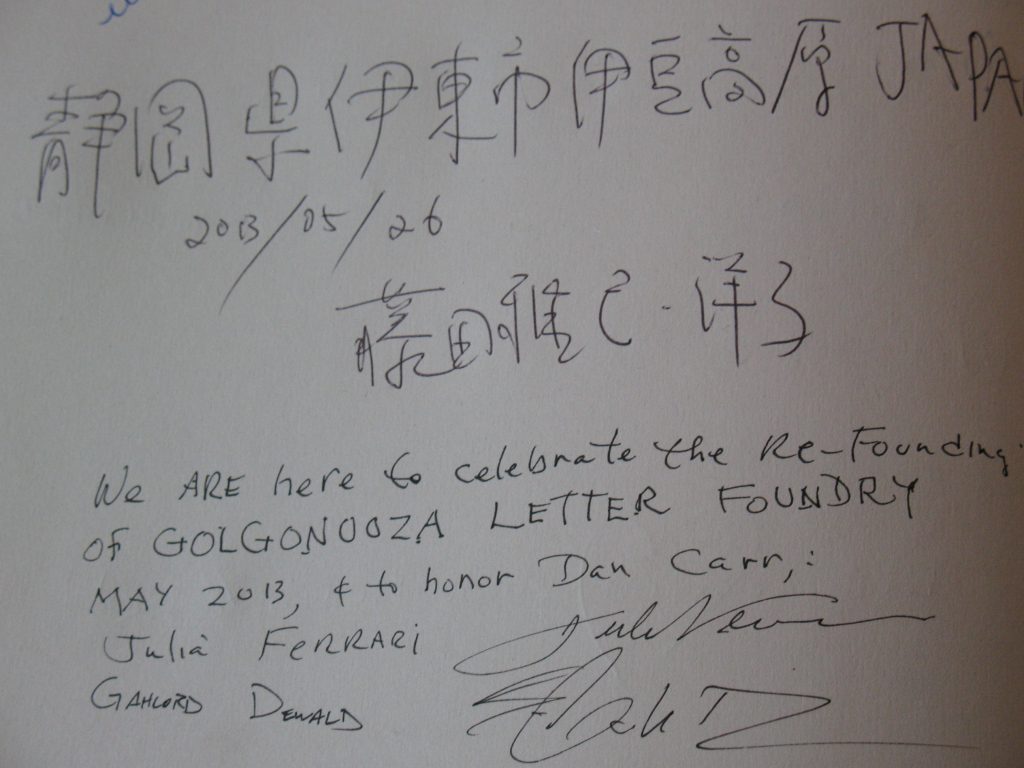 静岡県伊東市伊豆高原 JAPA
2013/05/26
藤田雅己・洋子
We ARE here to celebrate the Re-Founding
of GOLGONOOZA LETTER FOUNDRY
MAY 2013, & to honor Dan Carr,:
Julia FERRARi
GAHLORD DEWALD